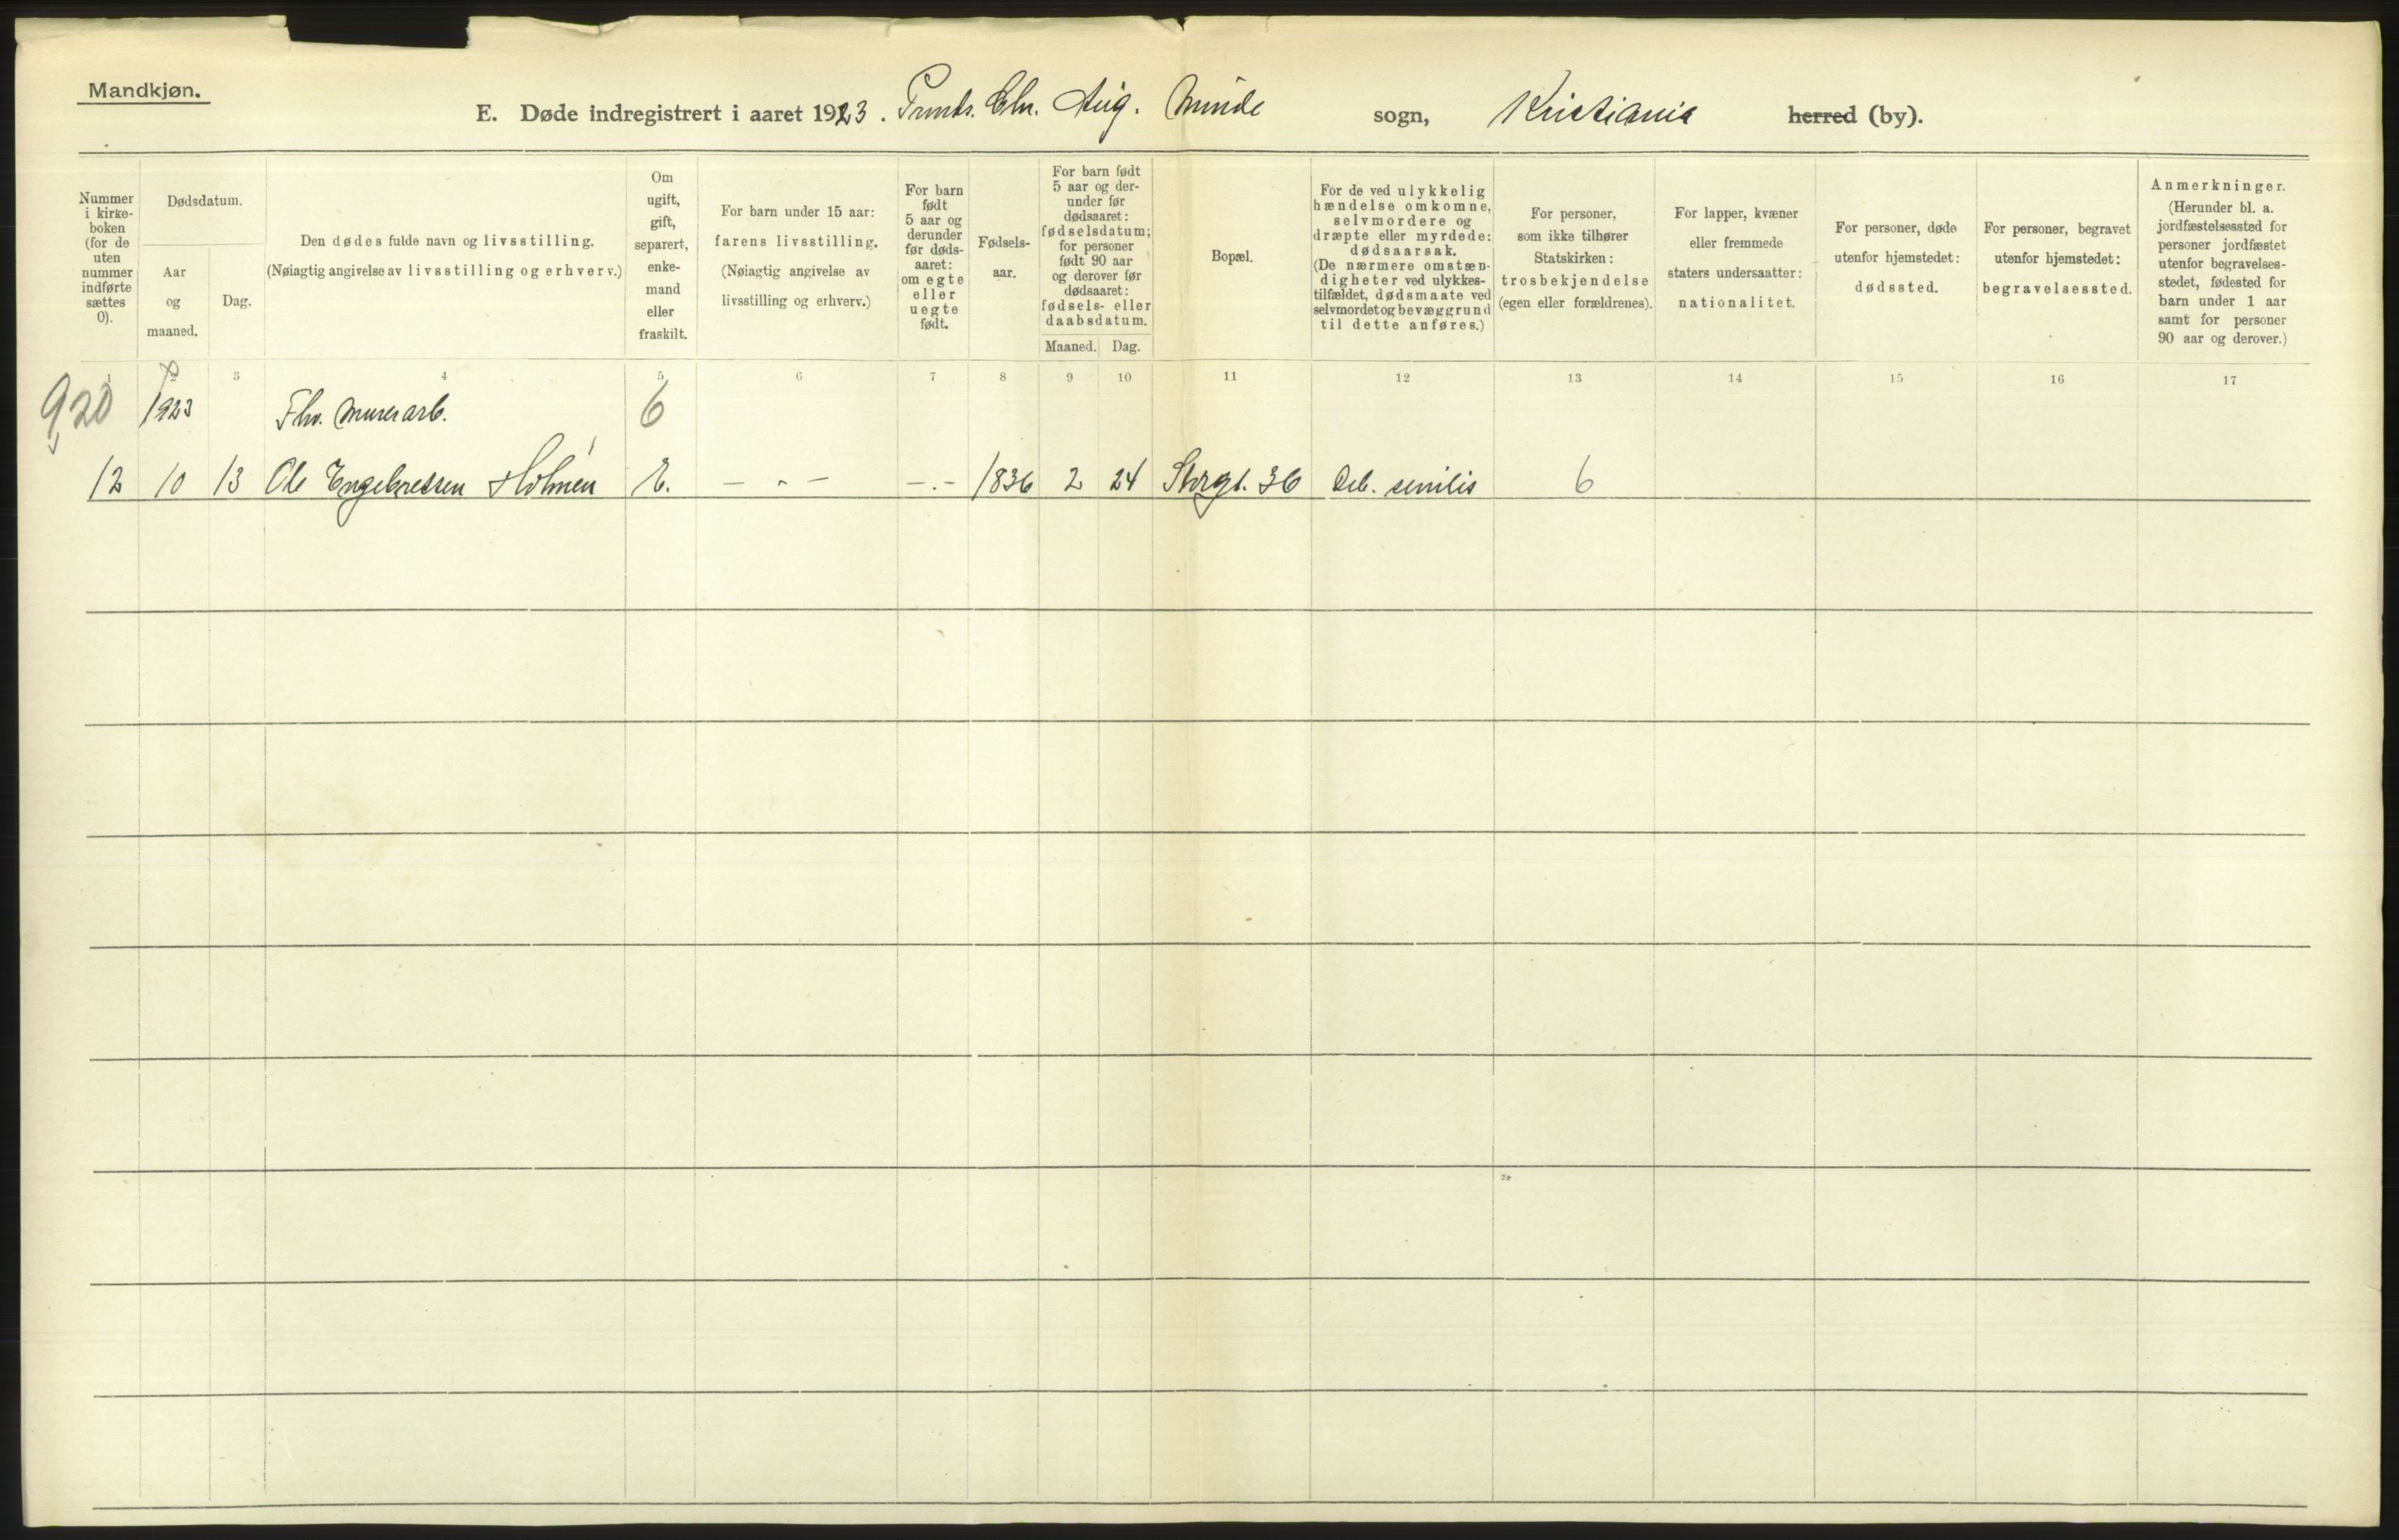 Mandkjøn.
E. Døde indregistrert i aaret 1923. Prinds. Chr. Aug. Minde sogn, Kristiania herred (by).
Nummer i kirke-boken (for de uten nummer indførte sættes 0).
Dødsdatum.
Aar og maaned.
Dag.
Den dødes fulde navn og livsstilling.
(Nøiagtig angivelse av livsstilling og erhverv.)
Om ugift, gift, separert, enke-mand eller fraskilt.
For barn under 15 aar:
farens livsstilling.
(Nøiagtig angivelse av
livsstilling og erhverv.)
For barn født 5 aar og derunder før døds-aaret: om egte eller uegte født.
Fødsels-aar.
For barn født
5 aar og der-
under før
dødsaaret:
fødselsdatum;
for personer
født 90 aar
og derover før
dødsaaret:
fødsels- eller
daabsdatum.
Maaned. Dag.
Bopæl.
For de ved ulykkelig
hændelse omkomne,
selvmordere og
dræpte eller myrdede:
dødsaarsak.
(De nærmere omstæn-
digheter ved ulykkes-
tilfældet, dødsmaate ved
selvmordet og bevæggrund
til dette anføres.)
For personer,
som ikke tilhører
Statskirken:
trosbekjendelse
(egen eller forældrenes).
For lapper, kvæner
eller fremmede
staters undersaatter:
nationalitet.
For personer, døde
utenfor hjemstedet:
dødssted.
For personer, begravet
utenfor hjemstedet:
begravelsessted.
Anmerkninger.
(Herunder bl. a.
jordfæstelsessted for
personer jordfæstet
utenfor begravelses-
stedet, fødested for
barn under 1 aar
samt for personer
90 aar og derover.)
1 2 3 4 5 6 7 8 9 10 11 12 13 14 15 16 17
920 1923 Fhv. murerarb. 6
12 10 13 Ole Engebretsen Holmen E. - " - - . - 1836 2 24 Storgt. 36 Deb. senilis 6